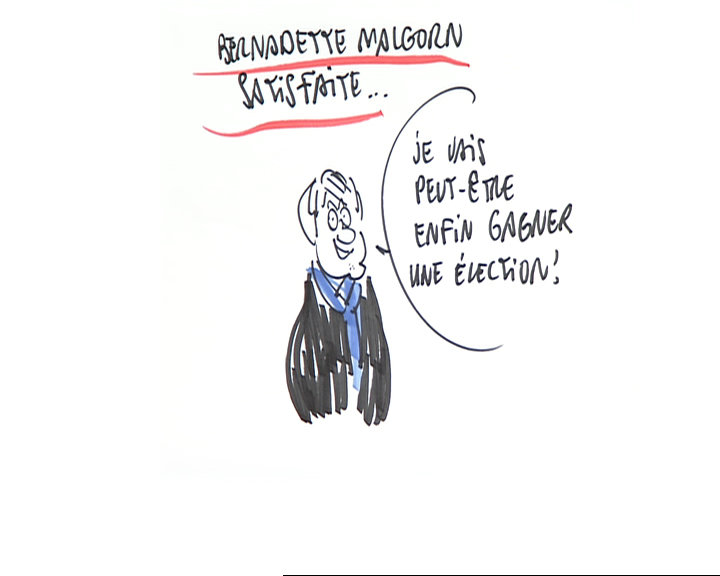 BERNADETTE MALGORN
SATISFAITE...
JE VAIS
PEUT-ÊTRE
ENFIN GAGNER
UNE ÉLECTION!